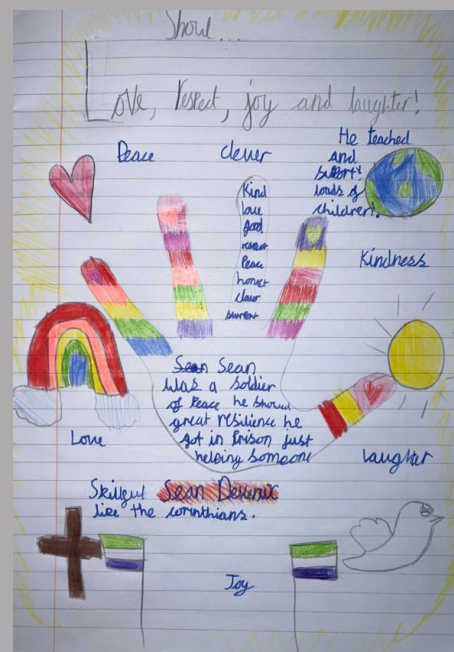 Show...
Love, respect, joy and laughter!
Peace
clever
He teached
and
loads of
children!
Kind
love
good
Peace
honest
Kindness
Sean Sean
was a soldier
of Peace he showed
great resilience he
got in Prison Just
helping someone
Love
laughter
Skillful Sean Devereux
like the corinthians.
Joy